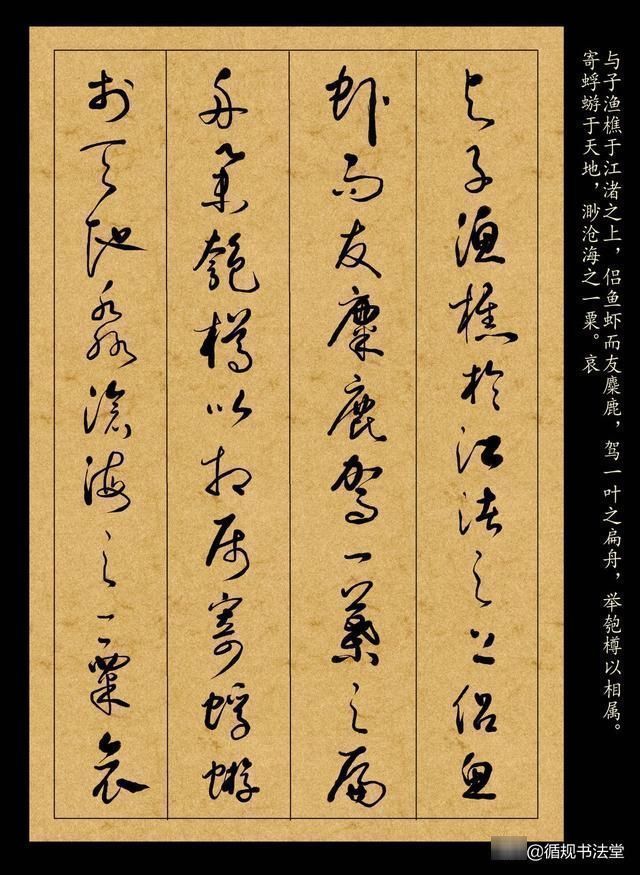 与子渔樵于江渚之上，侣鱼虾而友麋鹿，驾一叶之扁舟，举匏樽以相属。
寄蜉蝣于天地，渺沧海之一粟。哀
与子渔樵於江渚之上侣鱼
虾而友麋鹿驾一葉之扁
舟举匏樽以相属寄蜉蝣
於天地渺滄海之一粟哀
@循规书法堂